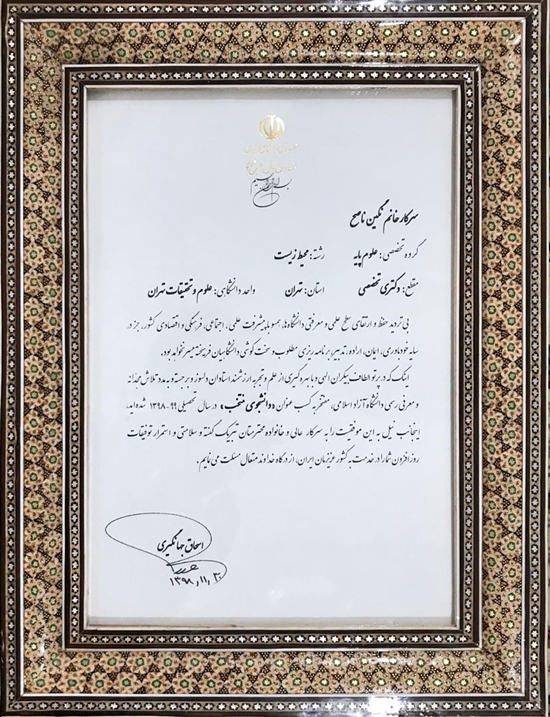 سرکار خانم نگین ناصح
گروه تخصصی: علوم پایه رشته: محیط زیست
مقطع: دکتری تخصصی استان: تهران واحد دانشگاهی: علوم و تحقیقات تهران
بی تردید حفظ و ارتقای سطح علمی و معرفتی دانشگاه‌ها، همسو با پیشرفت علمی، اجتماعی، فرهنگی و اقتصادی کشور، جز در
سایه خودباوری، ایمان، اراده، تدبیر، برنامه‌ریزی مطلوب و سخت کوشی دانشگاهیان فرهیخته میسر نخواهد بود.
اینک که در پرتو الطاف بیکران الهی و با بهره گیری از علم و تجربه ارزشمند استادان دلسوز و برجسته و به مدد تلاش مجدانه
و معرفی رسمی دانشگاه آزاد اسلامی، مفتخر به کسب عنوان «دانشجوی منتخب» در سال تحصیلی ۹۹-۱۳۹۸ شده‌اید،
اینجانب نیل به این موفقیت را به سرکار عالی و خانواده محترمتان تبریک گفته و سلامتی و استمرار توفیقات
روزافزون شما را در خدمت به کشور عزیزمان ایران، از درگاه خداوند متعال مسئلت می نمایم.
اسحاق جهانگیری
۱۳۹۸،۱۱،۳۰